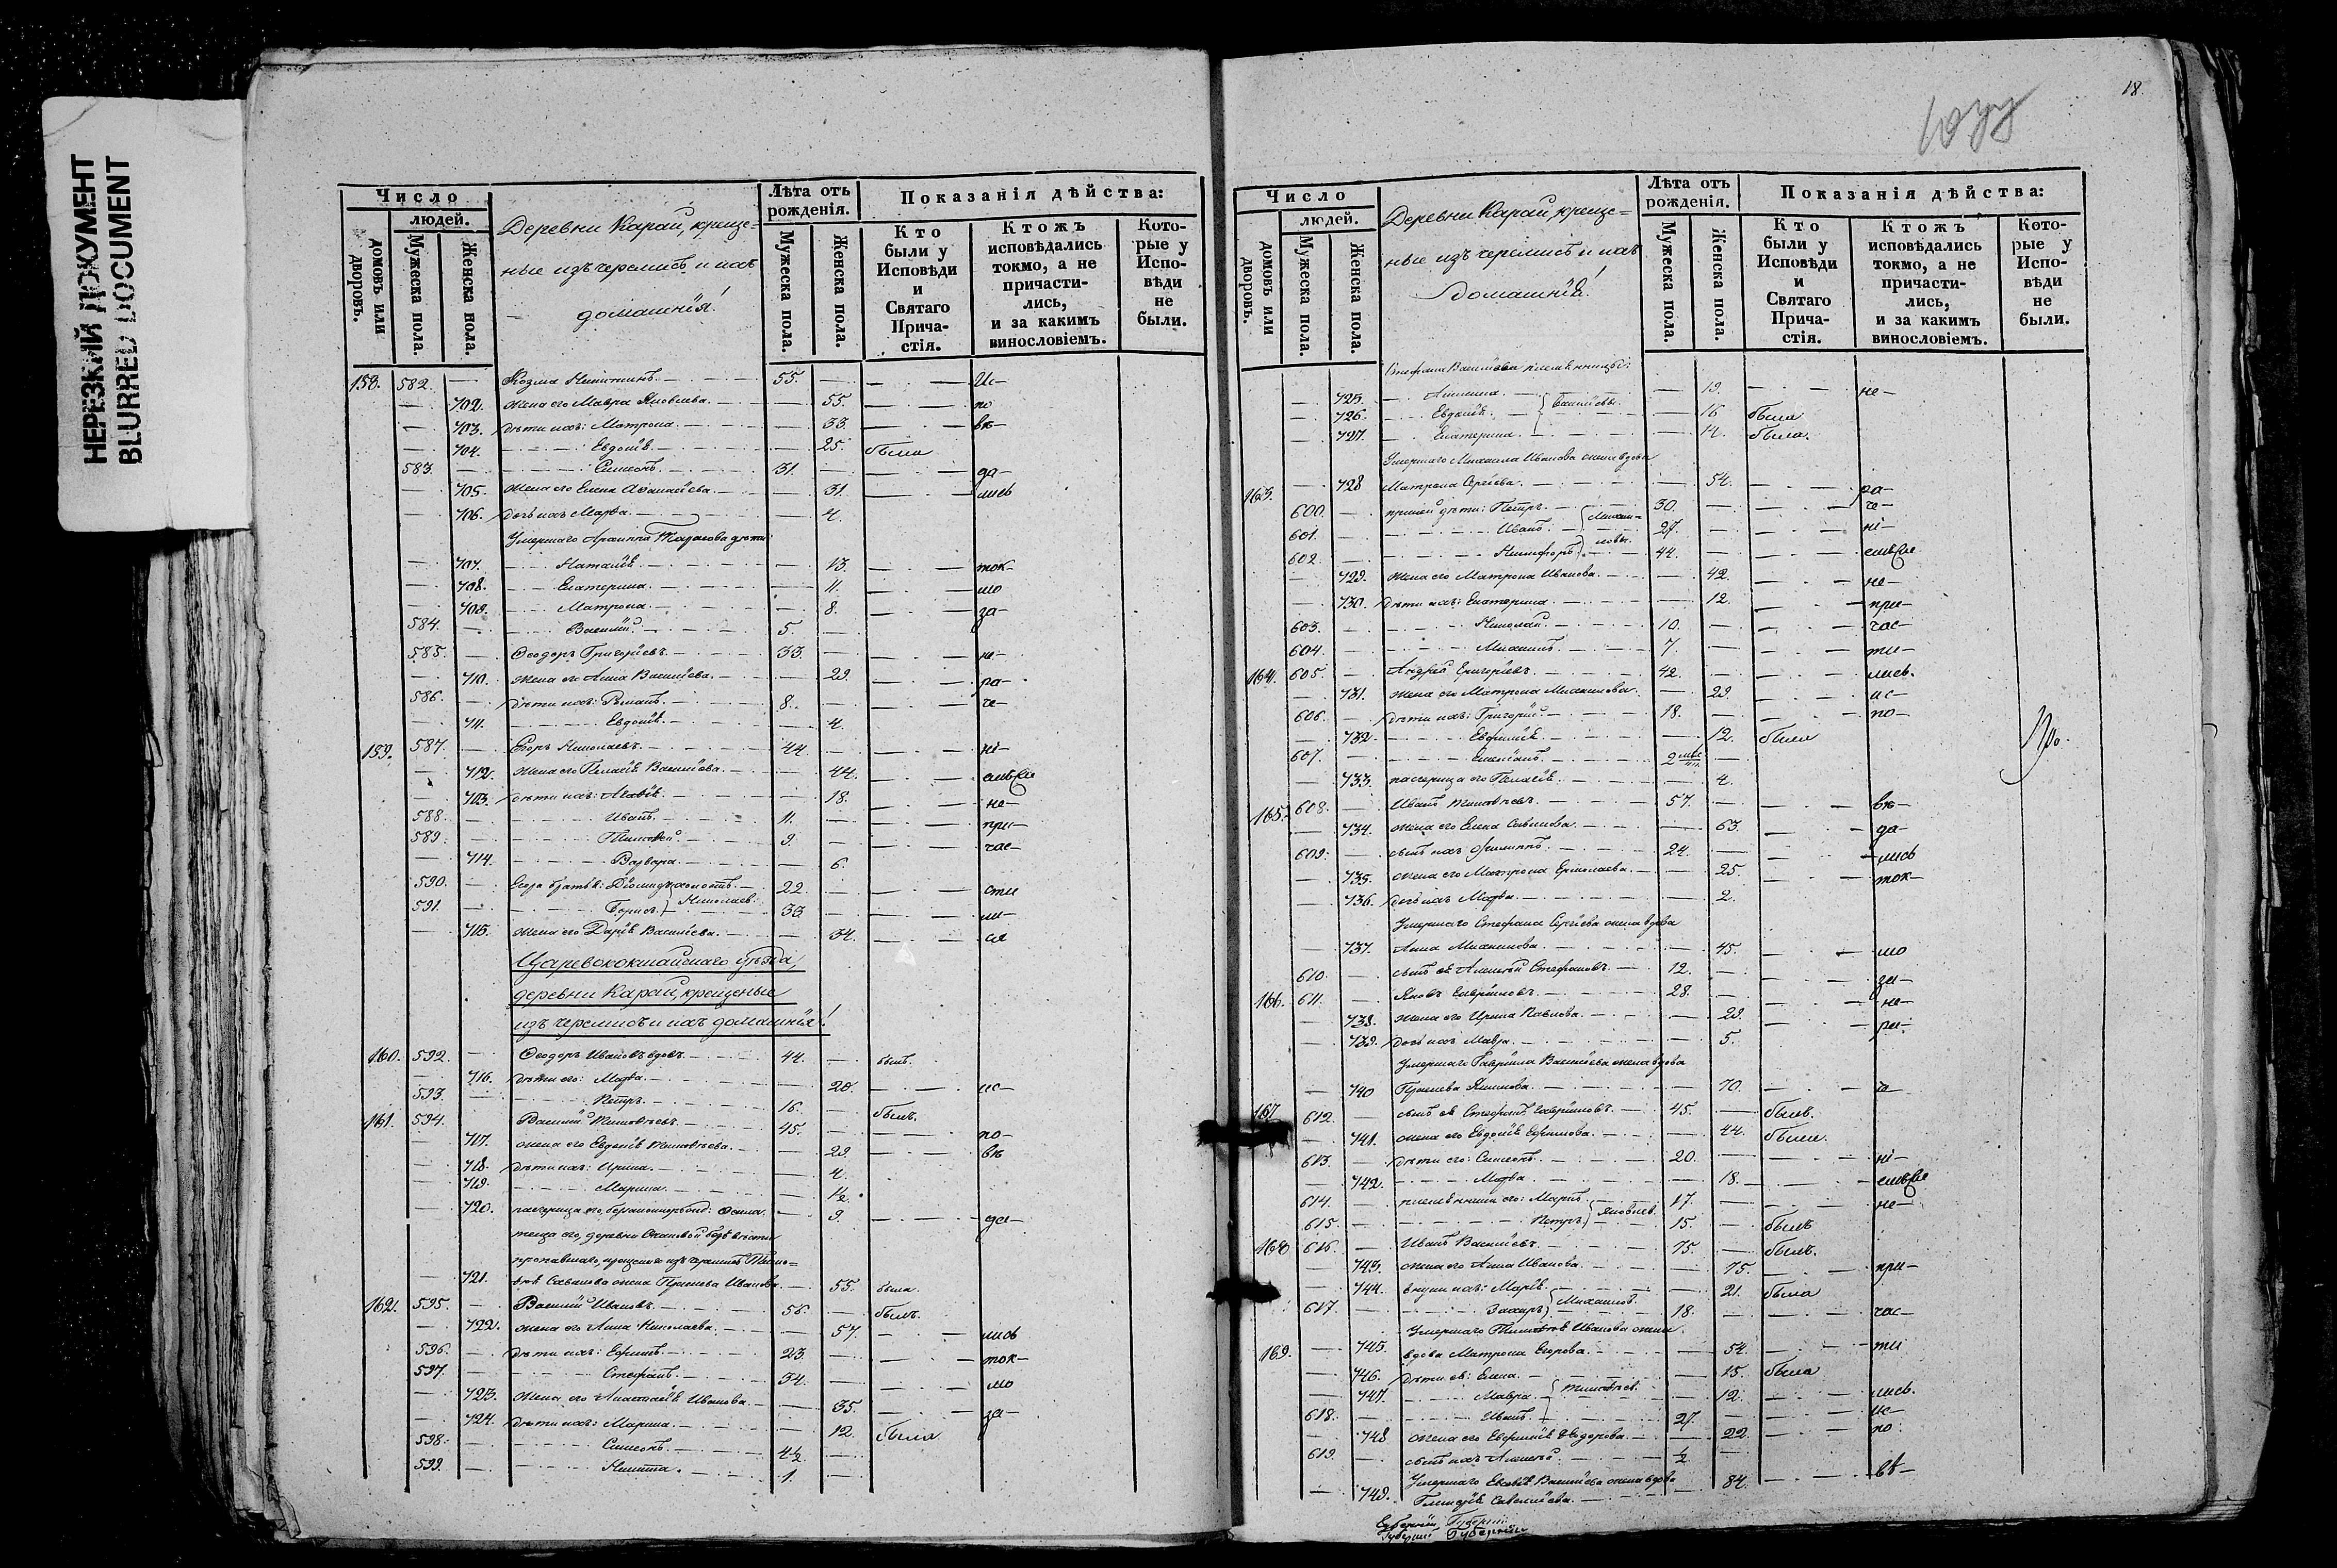 НЕРЕЗКИЙ ДОКУМЕНТ
BLURRED DOCUMENT
Число
людей.
домовъ или дворовъ.
Мужеска пола.
Женска пола.
Деревни Караи, креще=
ные изъ черемисъ и ихъ
домашнія!
Лѣта отъ рожденія.
Мужеска пола.
Женска пола.
Показанія дѣйства:
Кто были у Исповѣди и Святаго Прича-стія.
Ктожъ исповѣдались токмо, а не причасти-лись, и за какимъ винословіемъ.
Кото-рые у Испо-вѣди не были.
158. 582. — Козма 55. — Ис-
— 702. жена его Мавра Яковлева. — 55. по
— 703. дѣти ихъ: Матрона. — 33. вѣ-
— 704. Евдокія. — 25. была
583. — Симеонъ. 31. — да-
— 705. жена его Елена Аѳанасіева. — 31. лись
— 706. дочь ихъ Марѳа. — 4.
Умершаго Архиппа Тарасова дѣти:
— 707. Наталія. — 13. ток-
— 708. Екатерина. — 11. мо
— 709. Матрона. — 8. за-
584. — Василій. 5. —
585. — Ѳеодоръ Григорьевъ. 33. — не-
— 710. жена его Анна Васильева. — 29. ра-
586. — дѣти ихъ: Романъ. 8. — че-
— 711. Евдокія. — 4.
159. 587. — Егоръ Николаевъ. 44. — ні-
— 712. жена его Пелагія Васильева. — 44. емъ Ея
— 713. дѣти ихъ: Агафія. — 18. не-
588. — Иванъ. 11. — при-
589. — Тимофей. 9. — час-
— 714. Варвара. — 6.
590. — Егора братья: Діомидъ холостъ. 22. — сти
591. — Борисъ. Николаев. 33. — ли-
— 715. жена его Дарія Васильева. — 34. ся
Царевококшайскаго уѣзда,
деревни Караи, крещеные
изъ черемисъ и ихъ домашнія!
160. 592. — Ѳеодоръ Ивановъ вдовъ. 44. — былъ.
— 716. дѣти его: Марѳа. — 20. ис-
593. — Петръ. 16. — былъ.
161. 594. Василій Тимоѳеевъ. 45. — по-
— 717. жена его Евдокія Тимоѳеева. — 29. вѣ
— 718. дѣти ихъ: Ирина. — 4.
— 719. Марина. — 1/2.
— 720. падчерица его, — 9. да-
теща его, деревни безъ вѣсти
пропавшаго, крещенаго изъ черемисъ Тимо=
— 721. жена Прасковья Иванова. — 55. была.
162. 595. — Василій Ивановъ. 56. — былъ.
— 722. жена его Анна Николаева. — 57. лись
596. — дѣти ихъ: Ефимъ. 23. — ток-
597. — Стефанъ. 34. — мо
— 723. жена его Анастасія Иванова. — 35. за-
— 724. дѣти ихъ: Марина. — 12. была
598. — Симеонъ. 4 1/2 —
599. — Никита. 1. —
18.
Число
людей.
домовъ или дворовъ.
Мужеска пола.
Женска пола.
Деревни Караи, креще=
ные изъ черемисъ и ихъ
домашнія!
Лѣта отъ рожденія.
Мужеска пола.
Женска пола.
Показанія дѣйства:
Кто были у Исповѣди и Святаго Прича-стія.
Ктожъ исповѣдались токмо, а не причасти-лись, и за какимъ винословіемъ.
Кото-рые у Испо-вѣди не были.
Стефана Васильева племянницы:
— 725. — 19. не-
— 726. Евдокія. Васильевы. — 16 была
— 727. Екатерина. — 14. была.
Умершаго Михаила Иванова жена вдова
163. — 728 Матрона Сергіева. — 54. ра-
600. — дѣти: Петръ. 30. — че-
601. — Иванъ. Михаи= 27. — ні-
602. — Никифоръ ловы. 44. — емъ Ея
— 729. жена его Матрона Иванова. — 42. не-
— 730. дѣти ихъ: Екатерина. — 12. при-
603. — Николай. 10. — час-
604. — Михаилъ. 7. — ти-
164. 605. — Андрей Григорьевъ. 42. — лись.
— 731. жена его Матрона Михаилова. — 29. ис-
606. — дѣти ихъ: Григорій. 18. — по-
— 732. Евфимія. — 12. была
607. — 2 мѣс. —
— 733. падчерица его Пелагія. — 4.
165. 608. — Иванъ Тимоѳеевъ. 57. — вѣ-
— 734. жена его Елена Савинова. — 63. да-
609. — сынъ ихъ Филиппъ. 24. — лись
— 735. жена его Матрона Ермолаева. — 25. ток-
— 736. дочь ихъ Марѳа. — 2.
Умершаго Стефана Сергіева жена вдова
— 737. Анна Михаилова. — 45. мо
610. — сынъ ея Алексѣй Стефановъ. 12. — за-
166. 611. — Яковъ Гавриловъ. 28. — не-
— 738. жена его Ирина Павлова. — 29. ра-
— 739. дочь ихъ Мавра. — 5.
Умершаго Гавріила Васильева жена вдова
— 740 Прасковья — 70. че-
167 612. — сынъ ея Стефанъ Гавриловъ. 45. — былъ.
— 741. жена его Евдокія Ефимова. — 44. была.
613. — дѣти его: Симеонъ. 20. — ні-
— 742. Марѳа. — 18. емъ Ея
614. — племянники его: 17. — не-
615. — Петръ Яковлев. 15. — былъ
168 616. — Иванъ Васильевъ. 75. — былъ.
— 743. жена его Анна Иванова. — 75. при-
— 744. внуки ихъ: Марія. — 21. была
617. — Захаръ Михаилов. 18. — час-
Умершаго Тимоѳея Иванова жена
169. — 745. вдова Матрона Егорова. — 54. ти
— 746. дѣти ея: Елена. — 15. была
— 747. Мавра. Тимоѳеев. — 12. лись.
618. — Иванъ. 27. — ис-
— 748 жена его Евфимія Ѳеодорова. — 22. по.
619. — сынъ ихъ Алексѣй. 1/2 —
Умершаго Васильева жена вдова
— 749. Гликерія Савельева. — 84. вѣ-
Про-
Губерніи Губерніи